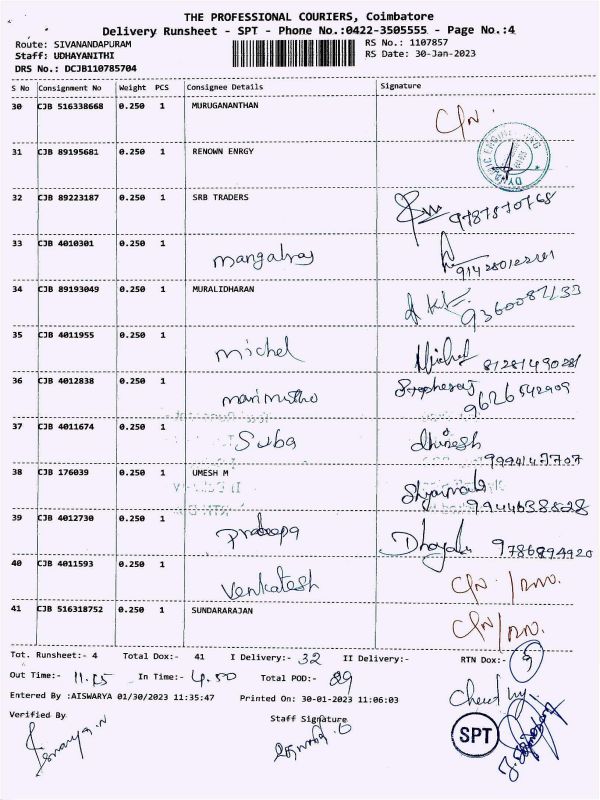 THE PROFESSIONAL COURIERS, Coimbatore
Delivery Runsheet - SPT - Phone No.:0422-3505555 - Page No.:4
Route: SIVANANDAPURAM
Staff: UDHAYANITHI
DRS No.: DCJB110785704
RS No.: 1107857
RS Date: 30-Jan-2023
S No Consignment No Weight PCS Consignee Details Signature
30 CJB 516338668 0.250 1 MURUGANANTHAN
31 CJB 89195681 0.250 1 RENOWN ENRGY
32 CJB 89223187 0.250 1 SRB TRADERS
33 CJB 4010301 0.250 1 mangalraj
34 CJB 89193049 0.250 1 MURALIDHARAN
35 CJB 4011955 0.250 1 michel
36 CJB 4012838 0.250 1 marimuthu 9626542909
37 CJB 4011674 0.250 1 Suba dhinesh
38 CJB 176039 0.250 1 UMESH M 9944638828
39 CJB 4012730 0.250 1 pradeepa 9786894920
40 CJB 4011593 0.250 1 venkatesh
41 CJB 516318752 0.250 1 SUNDARARAJAN
Tot. Runsheet:- 4 Total Dox:- 41 I Delivery:- 32 II Delivery:- RTN Dox:- 9
Out Time:- 11.15 In Time:- 4.50 Total POD:- 29
Entered By :AISWARYA 01/30/2023 11:35:47 Printed On: 30-01-2023 11:06:03
Verified By
Staff Signature
SPT